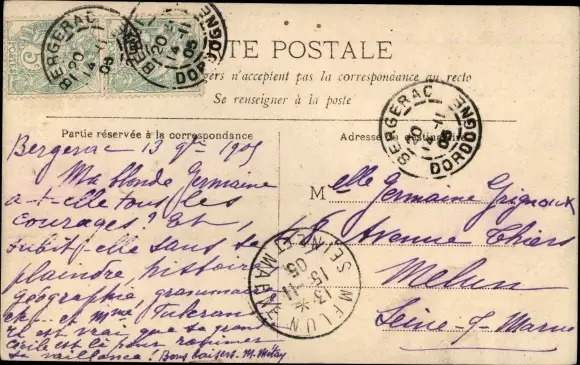 CARTE POSTALE
pas la correspondance au recto
Se renseigner à la poste
Partie réservée à la correspondance
Adresse
BERGERAC DORDOGNE
20
14 -11
05
BERGERAC DORDOGNE
20
14 -11
05
BERGERAC DORDOGNE
20
14 -11
05
Bergerac 13 9bre 1905
Ma blonde Germaine
a-t-elle tous les
courages? Et,
subit-elle sans se
plaindre, histoire
géographie, grammaire
etc. et Mme
Il est vrai que sa grande
Cécile est là pour
sa vaillance! Bons baisers. M.
Melle Germaine
Avenue Thiers
Melun
Seine-&-Marne
MELUN SEINE-ET-MARNE
13
15 -11
05